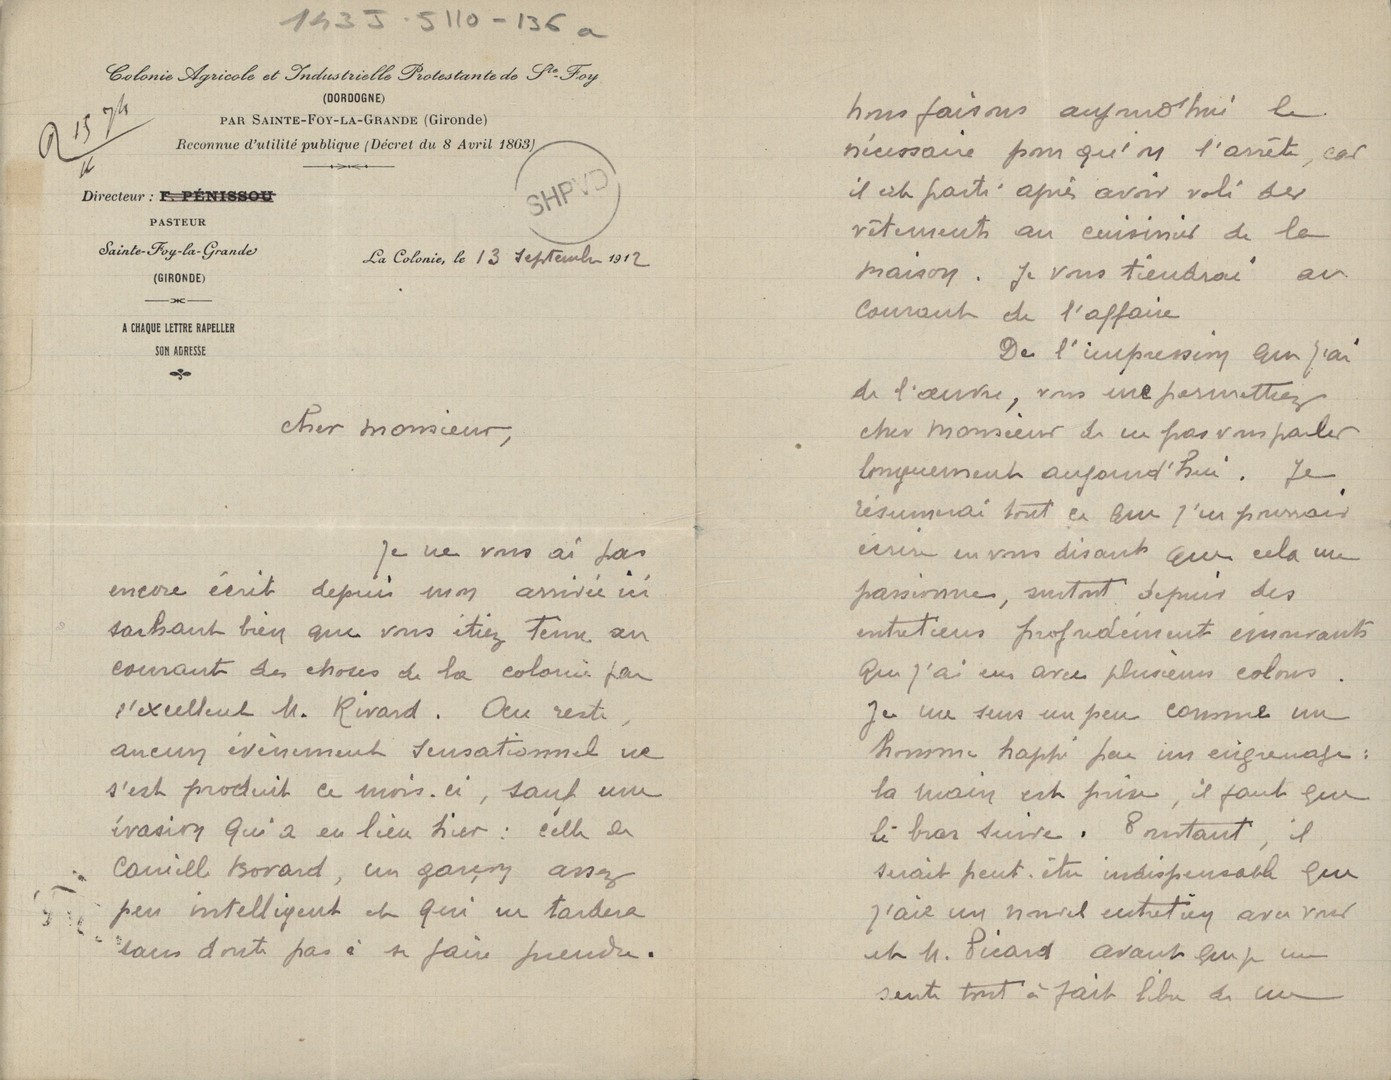 143 J. 5110 - 136 a
Colonie Agricole et Industrielle Protestante de Ste-Foy
(DORDOGNE)
PAR SAINTE-FOY-LA-GRANDE (Gironde)
Reconnue d'utilité publique (Décret du 8 Avril 1863)
R 15
SHPVD
Directeur : F. PÉNISSOU
PASTEUR
Sainte-Foy-la-Grande
(GIRONDE)
La Colonie, le 13 Septembre 1912
A CHAQUE LETTRE RAPELLER
SON ADRESSE
Cher Monsieur,
Je ne vous ai pas
encore écrit depuis mon arrivée ici
sachant bien que vous étiez tenu au
courant des choses de la colonie par
l'excellent M. Rivard. Au reste,
aucun évènement sensationnel ne
s'est produit ce mois-ci, sauf une
évasion qui a eu lieu hier : celle de
Camille Bovard, un garçon assez
peu intelligent et qui ne tardera
sans doute pas à se faire prendre.
Nous faisons aujourd'hui le
nécessaire pour qu'on l'arrête, car
il est parti après avoir volé des
vêtements au cuisinier de la
maison. Je vous tiendrai au
courant de l'affaire
De l'impression que j'ai
de l'œuvre, vous me permettrez
cher Monsieur de ne pas vous parler
longuement aujourd'hui. Je
résumerai tout ce que j'en pourrais
écrire en vous disant que cela me
passionne, surtout depuis des
entretiens profondément émouvants
que j'ai eus avec plusieurs colons.
Je me sens un peu comme un
homme happé par un engrenage :
la main est prise, il faut que
le bras suive. Pourtant, il
serait peut-être indispensable que
j'aie un nouvel entretien avec vous
et M. Picard avant que je me
sente tout à fait libre de me